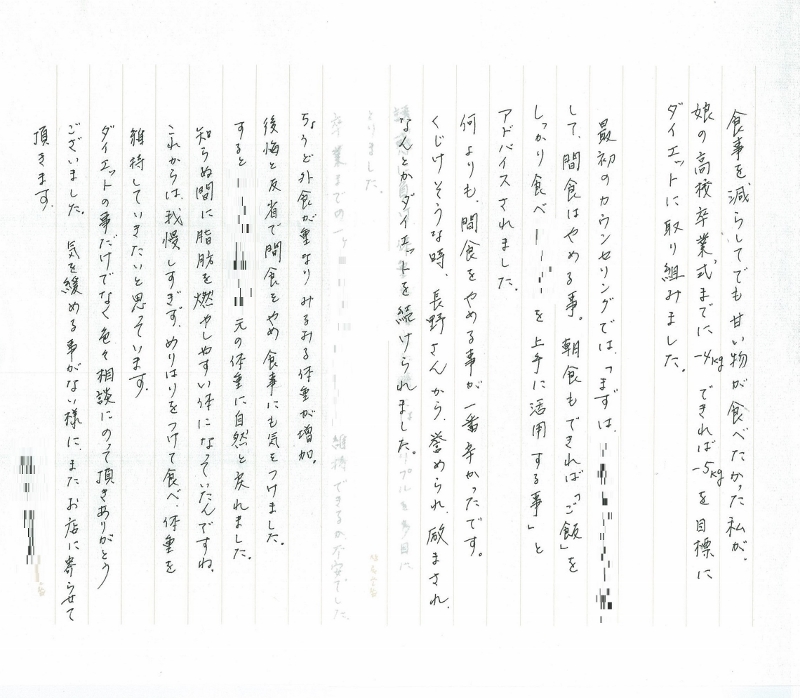 食事を減らしてでも甘い物が食べたかった私が、
娘の高校卒業式までに -4kg できれば -5kg を目標に
ダイエットに取り組みました。
最初のカウンセリングでは、「まずは、
して、間食はやめる事。朝食もできれば「ご飯」を
しっかり食べ を上手に活用する事」と
アドバイスされました。
何よりも、間食をやめる事が一番辛かったです。
くじけそうな時、長野さんから、誉められ、励まされ、
なんとかダイエットを続けられました。
よりました。
卒業までの 維持できるか不安でした
ちょうど外食が重なりみるみる体重が増加。
後悔と反省で間食をやめ食事にも気をつけました。
すると 元の体重に自然と戻れました。
知らぬ間に脂肪を燃やしやすい体になっていたんですね。
これからは、我慢しすぎず、めりはりをつけて食べ、体重を
維持していきたいと思っています。
ダイエットの事だけでなく色々相談にのって頂きありがとう
ございました。気を緩める事がない様に、またお店に寄らせて
頂きます。